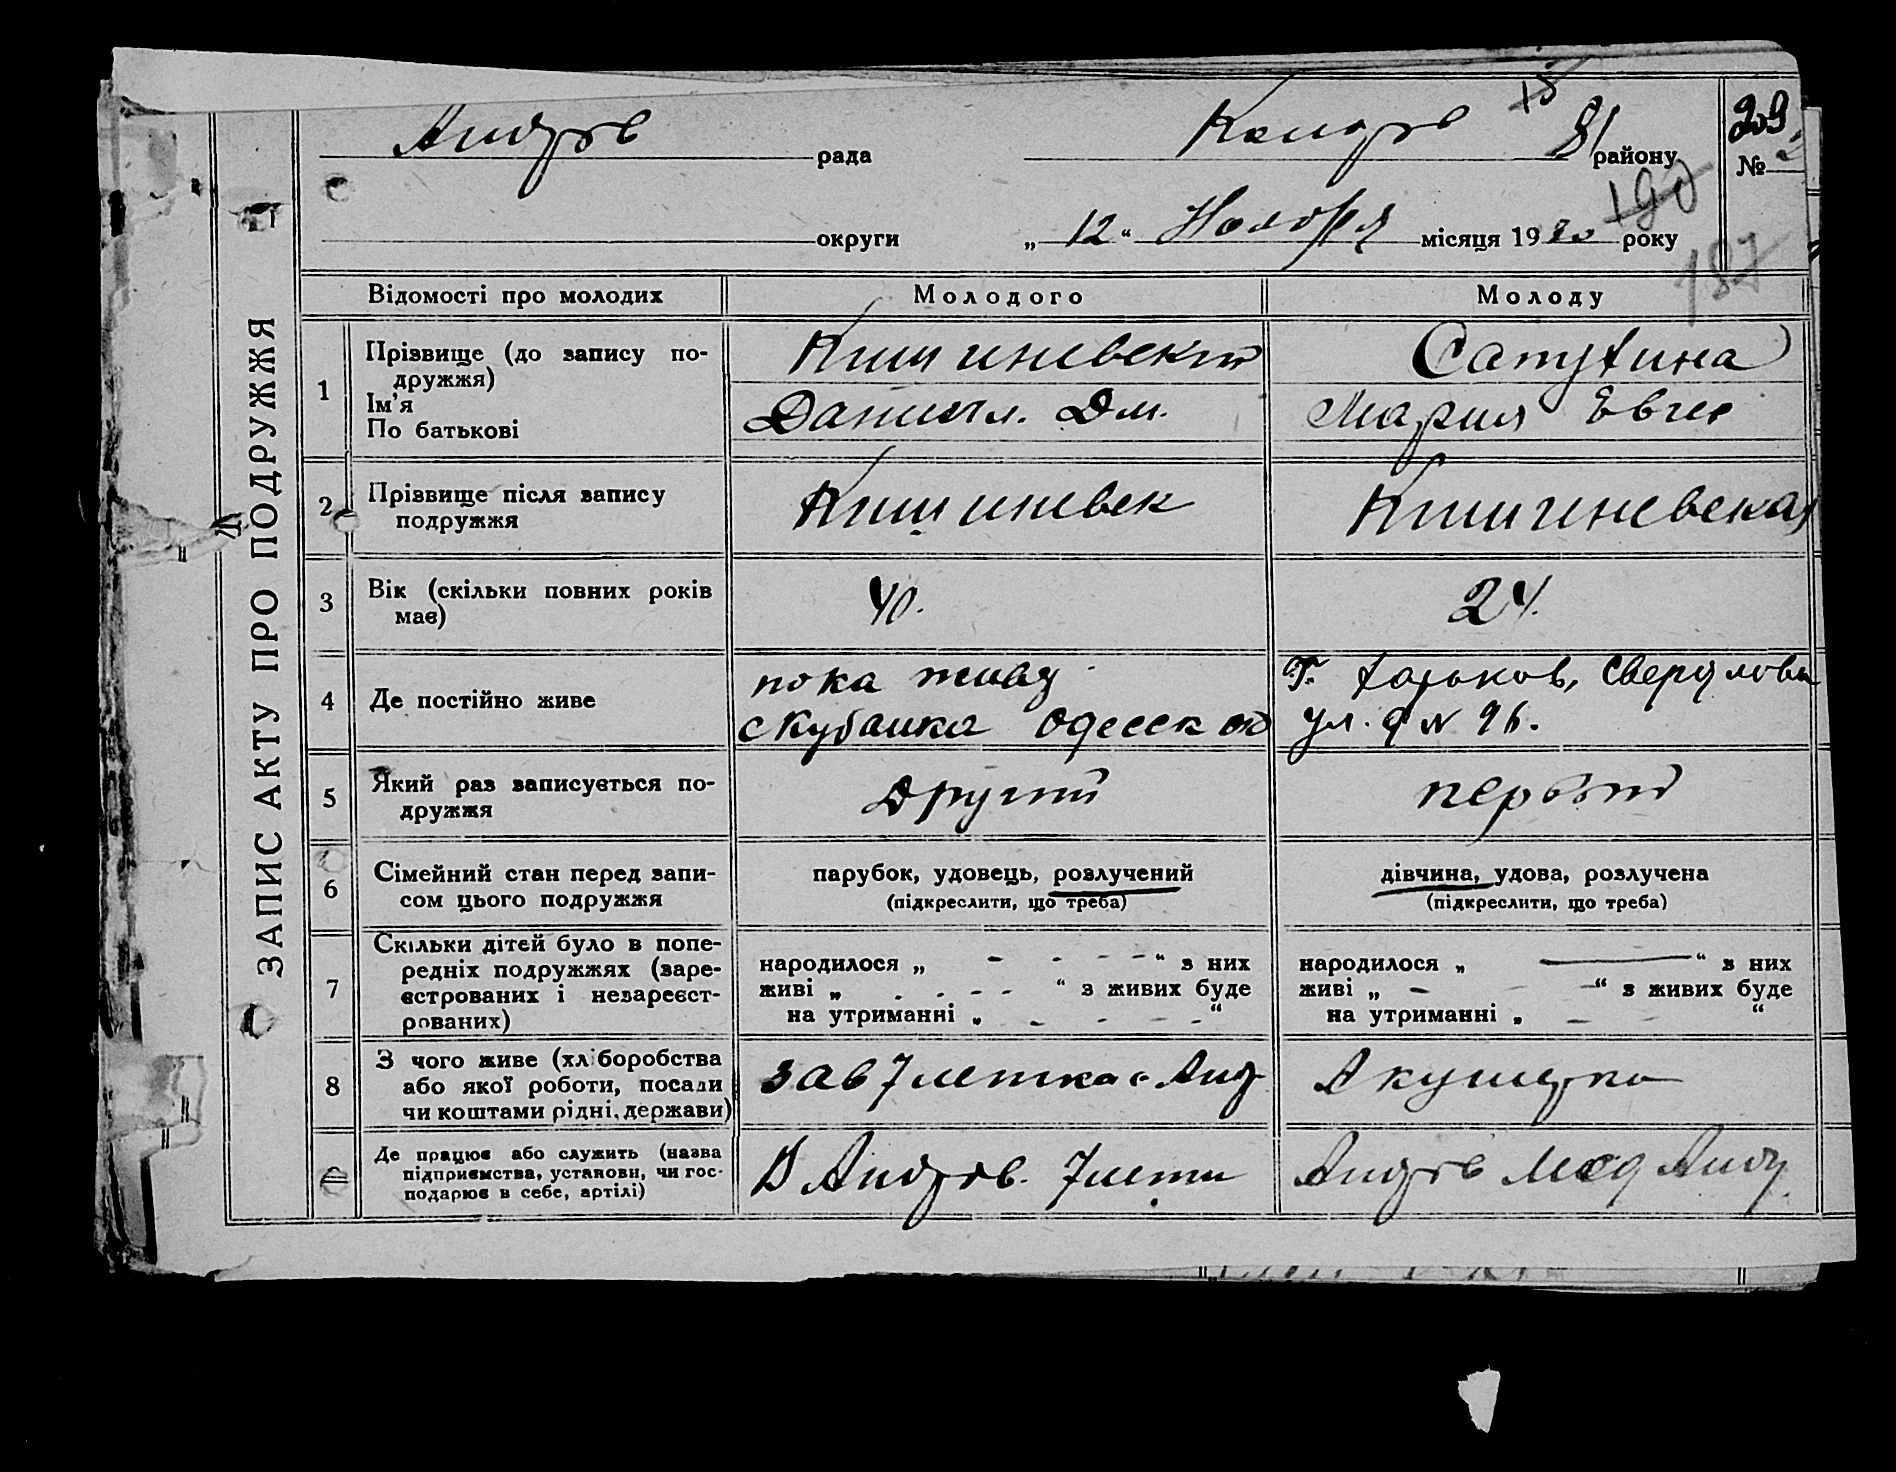 ЗАПИС АКТУ ПРО ПОДРУЖЖЯ
Андров рада
району
209
№
190
187
округи
„ 12 “ Ноября місяця 1930 року
Відомості про молодих
Молодого
Молоду
1
Прізвище (до запису по-
дружжя)
Ім'я
По батькові
Кишиневский
Даниил. Дм.
Мария Евген
2
Прізвище після запису
подружжя
Кишиневск
Кишиневская
3
Вік (скільки повних років
має)
40.
24.
4
Де постійно живе
пока живу
с Кубанка Одесской
г. Харьков, Свердлова
ул. д № 96.
5
Який раз записується по-
дружжя
Другий
первый
6
Сімейний стан перед запи-
сом цього подружжя
парубок, удовець, розлучений
(підкреслити, що треба)
дівчина, удова, розлучена
(підкреслити, що треба)
7
Скільки дітей було в попе-
редніх подружжях (заре-
єстрованих і незареєст-
рованих)
народилося „ - - - - “ з них
живі „ - - - - “ з живих буде
на утриманні „ - - - - “
народилося „ — “ з них
живі „ - - “ з живих буде
на утриманні „ - - “
8
З чого живе (хліборобства
або якої роботи, посади
чи коштами рідні, держави)
зав 7летка с. Анд
Акушерка
Де працює або служить (назва
підприємства, установи, чи гос-
подарює в себе, артілі)
В Андров. 7лети
Андров Мед